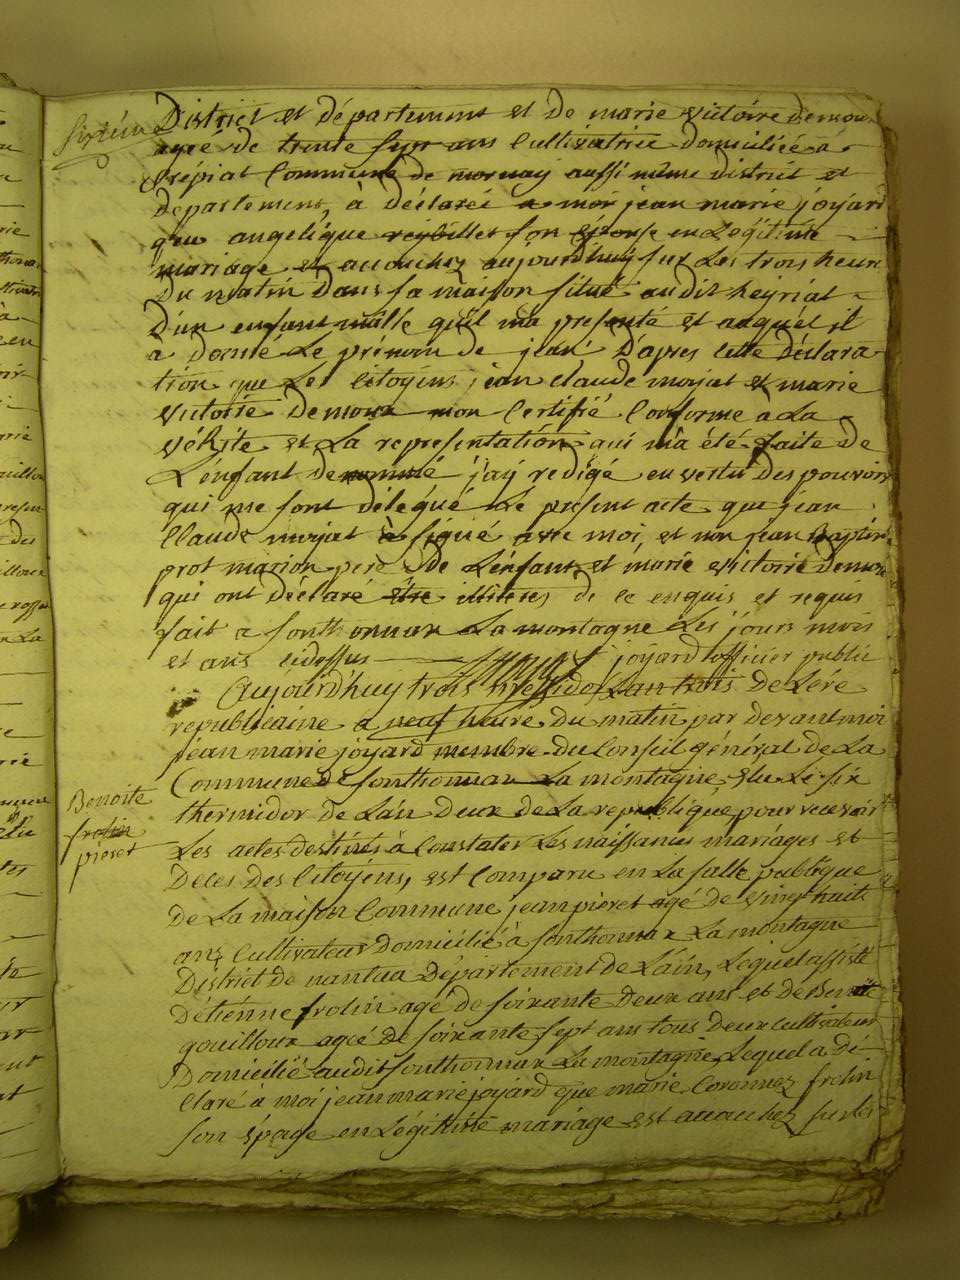 Sixième
District et département et de marie victoire demoux
agée de trente sept ans Cultivatrice domiciliée a
Crépiat Commune de mornay aussi même district et
département, à déclaréi a moi jean marie joyard
qeu angelique reybillet son épouse en Légitime
mariage et acouchez aujourdhuy sur Les trois heure
Du matin Dans sa maison situé audit heyriat
Dun enfant mâlle qu'il ma présenté et auquel il
a donné Le prénom de jean D'apres cette déclara
tion que Les Citoyens jean claude morjat et marie
victoire Demoux mon Certifié Conforme à La
vérité et La représentation qui m'a été faite de
L'enfant denommé j'ay redigé en vertu des pouvoirs
qui me sont délégué Le présent acte que jean
Claude morjat à signé avec moi, et non jean Baptiste
prot marion pere de L'enfant et marie victoire demoux
qui ont déclaré être illiteres de ce enquis et requis
fait a sonthonnax La montagne Les jours mois
et ans cidessus joyard officier public
Aujourd'huy trois messidor Lan trois de Lère
republicaine a neuf heure du matin par devant moi
jean marie joyard membre du Conseil général de La
Commune de sonthonnax La montagne Elu Le six
thermidor de L'an Deux de La republique pour recevoir
Les actes destinés à Constater Les naissances mariages et
Deces des Citoyens, est Comparu en La salle publique
de La maison Commune jean pieret agé de vingt huit
ans Cultivateur Domicilié à sonthonnax La montagne
District de nantua Département de L'ain, Lequel assisté
D'étienne frolin agé de soixante deux ans et de Benoit
gouilloux agé de soixante sept ans tous deux cultivateur
Domicilié audit sonthonnax La montagne Lequel a dé
Claré à moi jean marie joyard que marie Coronnez frolin
son épouse en Légitime mariage est acouchez sur les
Benoite
frolin
pieret